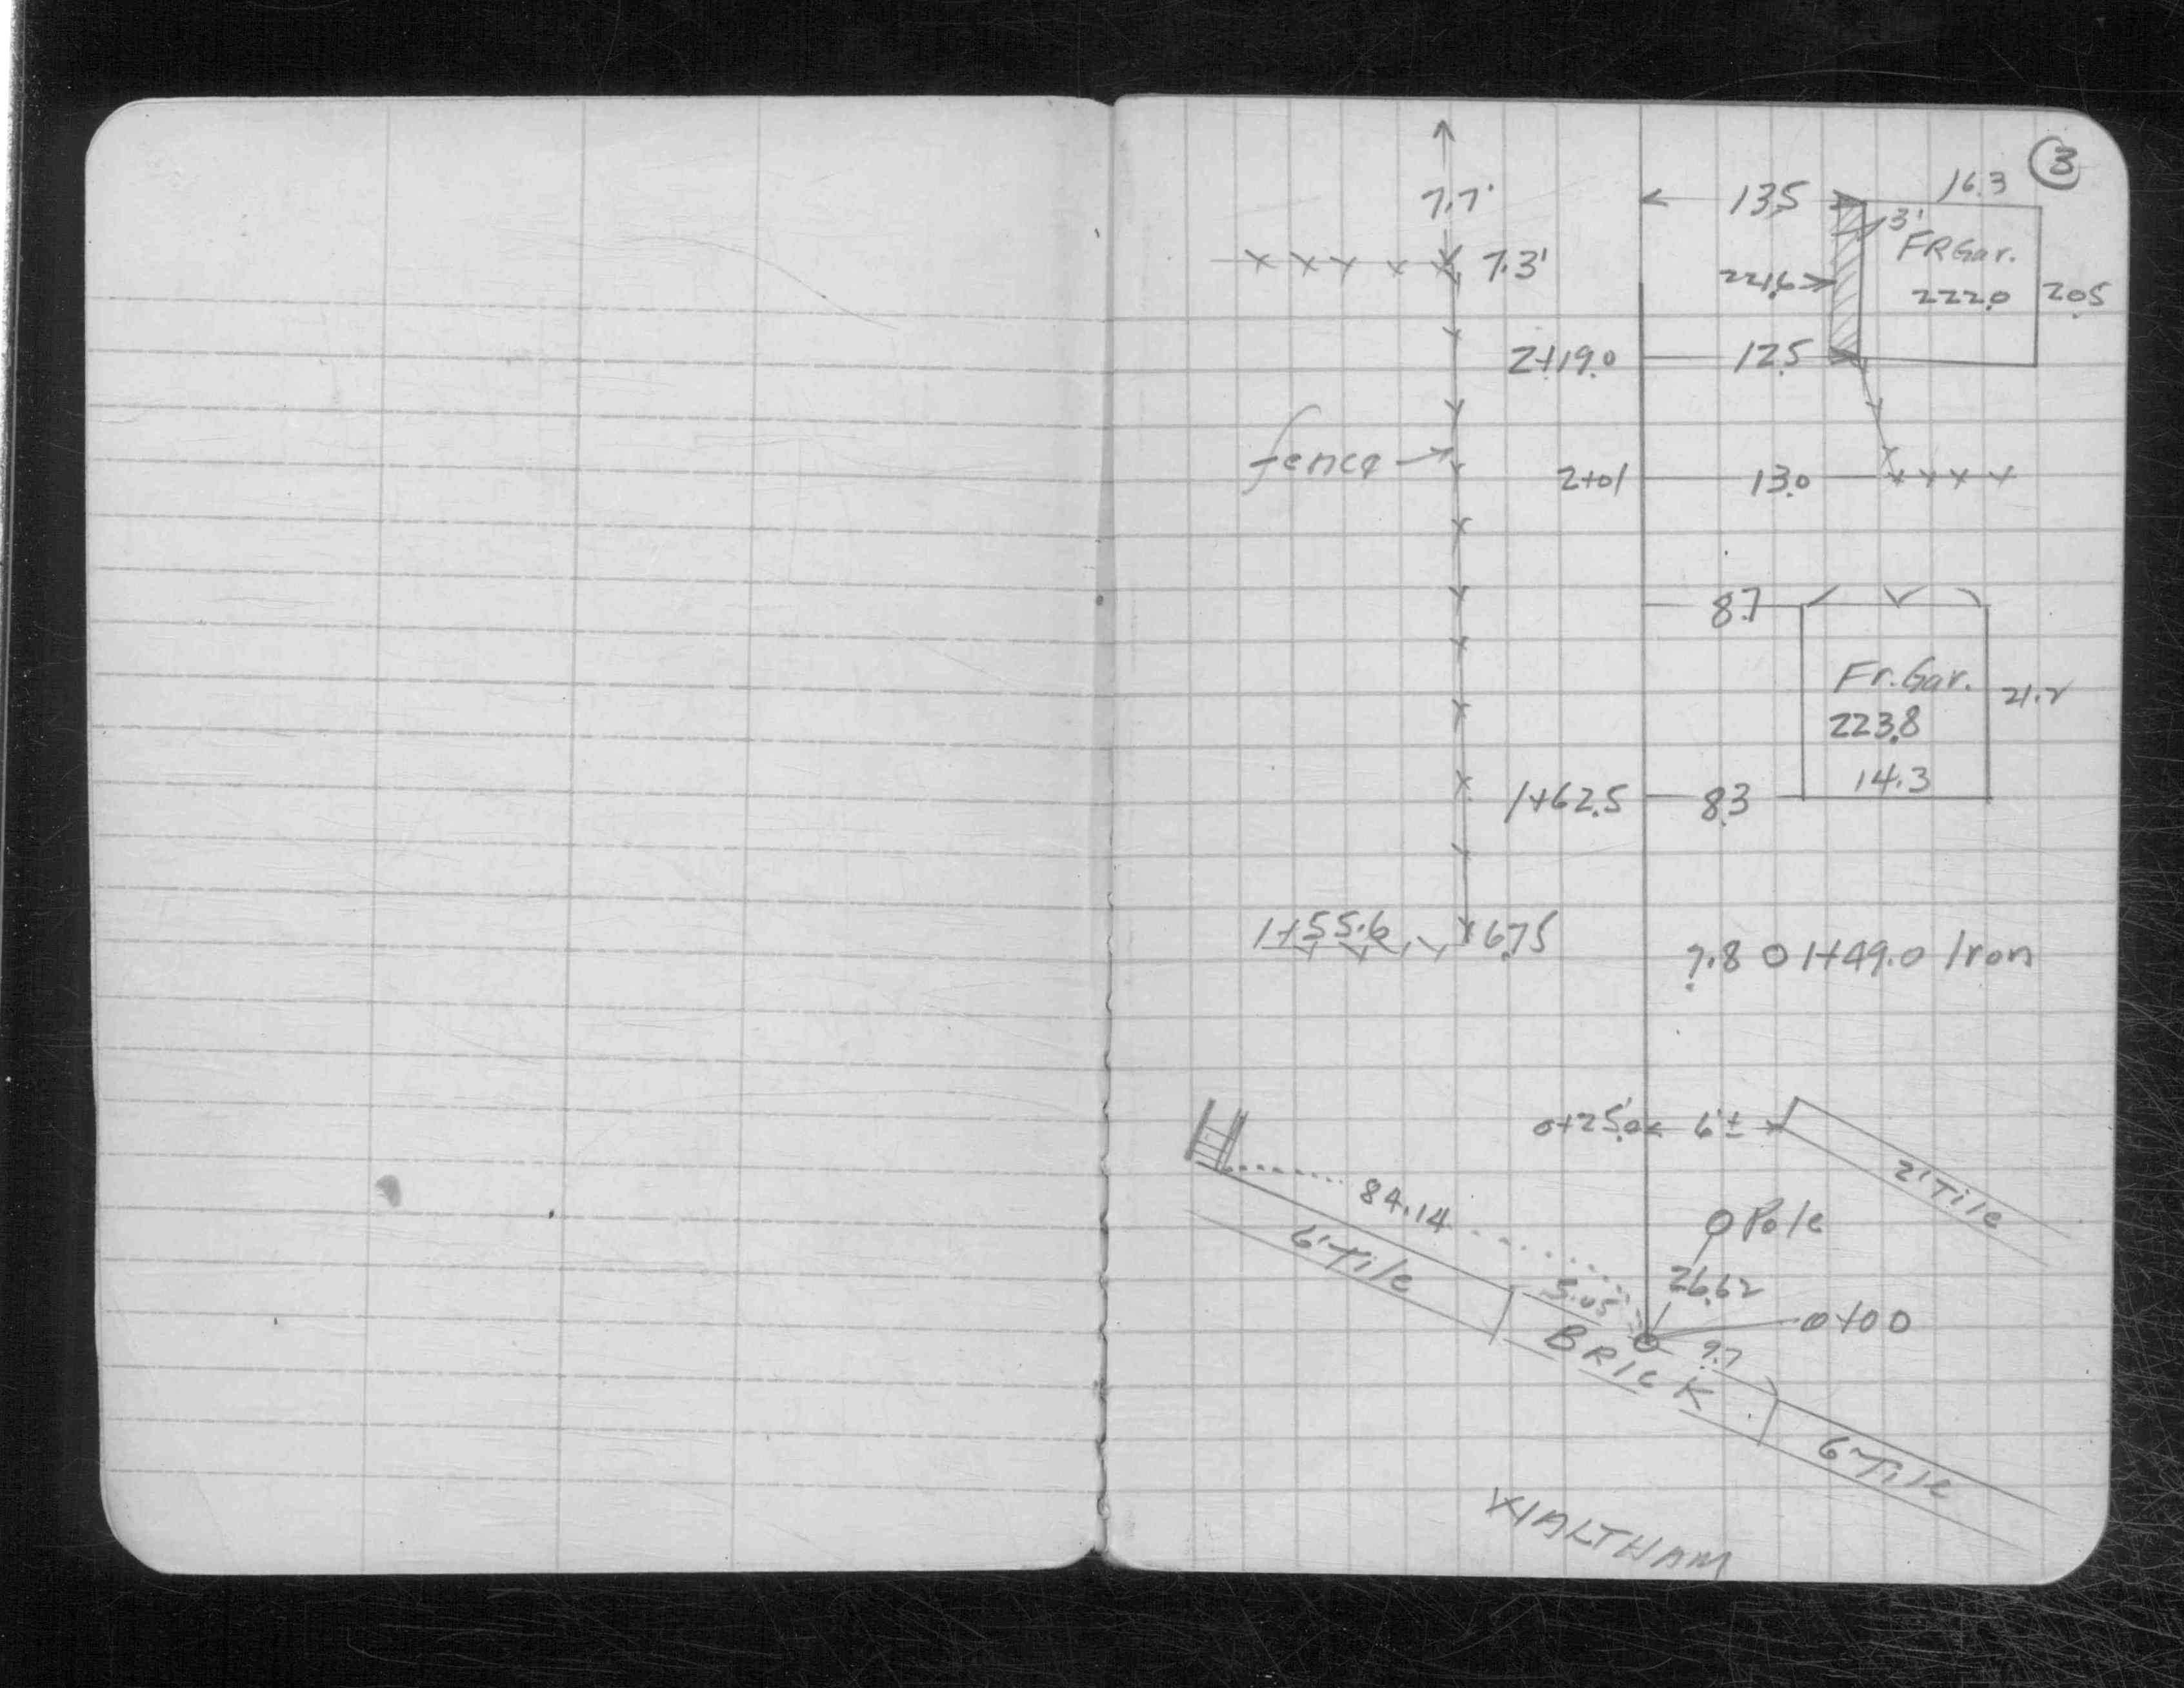 3
16.3
7.7'
13.5
3'
FR Gar.
7.3'
221.6
222.0
20.5
2+19.0
12.5
fence
2+01
13.0
8.7
Fr. Gar.
21.2
223.8
14.3
1+62.5
8.3
1+55.6
6.75
7.8 O 1+49.0 Iron
0+25.0
6'±
2' Tile
84.14
Pole
6' Tile
26.62
5.05
0+00
BRICK
9.7
6' Tile
WALTHAM